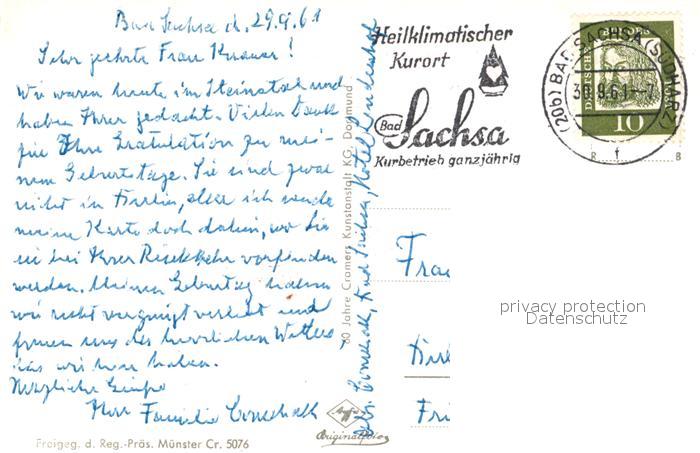 Bad Sachsa d. 29.9.61
Sehr geehrte Frau Knauer!
Wir waren heute im Steinatal und
haben Ihrer gedacht. Vielen Dank
für Ihre Gratulation zu mei-
nem Geburtstage. Sie sind zwar
nicht in Berlin, aber ich sende
meine Karte doch dahin, wo Sie
sie bei Ihrer Rückkehr vorfinden
werden. Meinen Geburtstag haben
wir recht vergnügt verlebt und
freuen uns des herrlichen Wetters
das wir hier haben.
Herzliche Grüße
Ihre Familie
Freigeg. d. Reg.-Präs. Münster Cr. 5076
60 Jahre Cramers Kunstanstalt KG, Dortmund
Bad Sachsa, Hotel
Agfa
Originalfoto
Heilklimatischer
Kurort
Bad Sachsa
Kurbetrieb ganzjährig
(20b) BAD SACHSA (SÜDHARZ)
30.9.61-7
f
DEUTSCHE
10
R B
Frau
privacy protection
Datenschutz